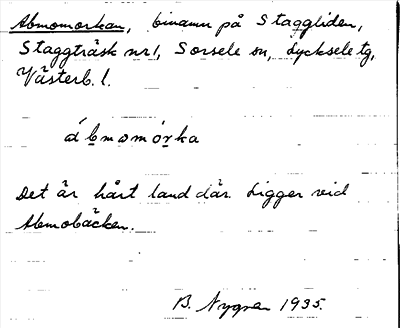 Abmomorkan, binamn på Staggliden,
Staggträsk nr1, Sorsele sn, Lycksele tg,
Västerb. l.
ábmomórka
Det är hårt land där. Ligger vid
Abmobäcken.
B. Nygren 1935.